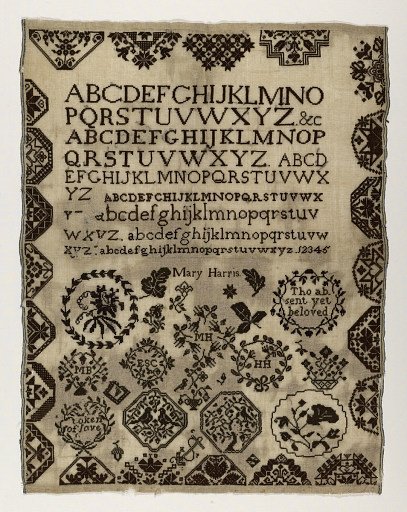 ABCDEFGHIJKLMNO
PQRSTUVWXYZ.&c
ABCDEFGHIJKLMNOP
QRSTUVWXYZ ABCD
EFGHIJKLMNOPQRSTUVWX
YZ ABCDEFGHIJKLMNOPQRSTUVWX
abcdefghijklmnopqrstuv
wxyz. abcdefghijklmnopqrstuv
wxyz. abcdefghijklmnopqrstuvwxyz. 12345
Mary Harris.
Tho ab
sent yet
beloved
MH
MB
ESC
HH
token
of love